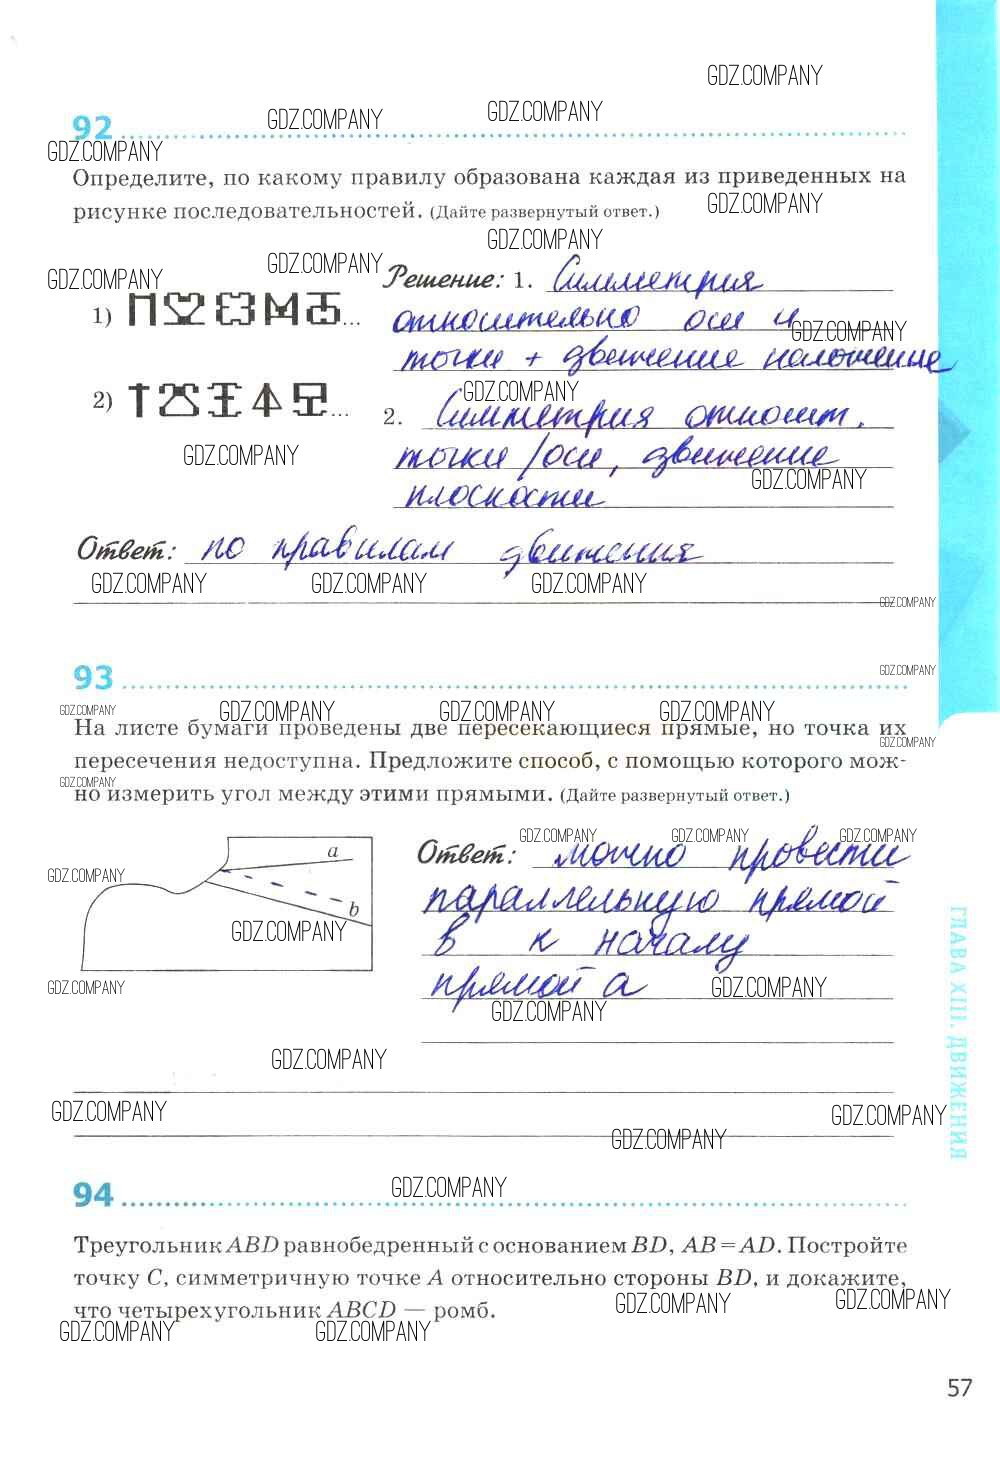 GDZ.COMPANY
92
GDZ.COMPANY GDZ.COMPANY
GDZ.COMPANY
Определите, по какому правилу образована каждая из приведенных на
рисунке последовательностей. (Дайте развернутый ответ.)
GDZ.COMPANY
GDZ.COMPANY
GDZ.COMPANY GDZ.COMPANY
Решение: 1. Симметрия
1) ...
относительно оси и
GDZ.COMPANY
точки + движение наложение
GDZ.COMPANY
2) ...
2. Симметрия относит.
точки /оси, движение
GDZ.COMPANY
GDZ.COMPANY
плоскости
Ответ: по правилам движения
GDZ.COMPANY GDZ.COMPANY GDZ.COMPANY
GDZ.COMPANY
GDZ.COMPANY
93
GDZ.COMPANY GDZ.COMPANY GDZ.COMPANY GDZ.COMPANY
На листе бумаги проведены две пересекающиеся прямые, но точка их
GDZ.COMPANY
пересечения недоступна. Предложите способ, с помощью которого мож-
GDZ.COMPANY
но измерить угол между этими прямыми. (Дайте развернутый ответ.)
GDZ.COMPANY GDZ.COMPANY GDZ.COMPANY
a
Ответ: можно провести
GDZ.COMPANY
параллельную прямой
b
GDZ.COMPANY
в к началу
прямой а
GDZ.COMPANY GDZ.COMPANY
GDZ.COMPANY
GDZ.COMPANY
GDZ.COMPANY GDZ.COMPANY
GDZ.COMPANY
ГЛАВА XIII. ДВИЖЕНИЯ
GDZ.COMPANY
94
Треугольник ABD равнобедренный с основанием BD, AB = AD. Постройте
точку C, симметричную точке A относительно стороны BD, и докажите,
что четырехугольник ABCD — ромб.
GDZ.COMPANY GDZ.COMPANY
GDZ.COMPANY GDZ.COMPANY
57